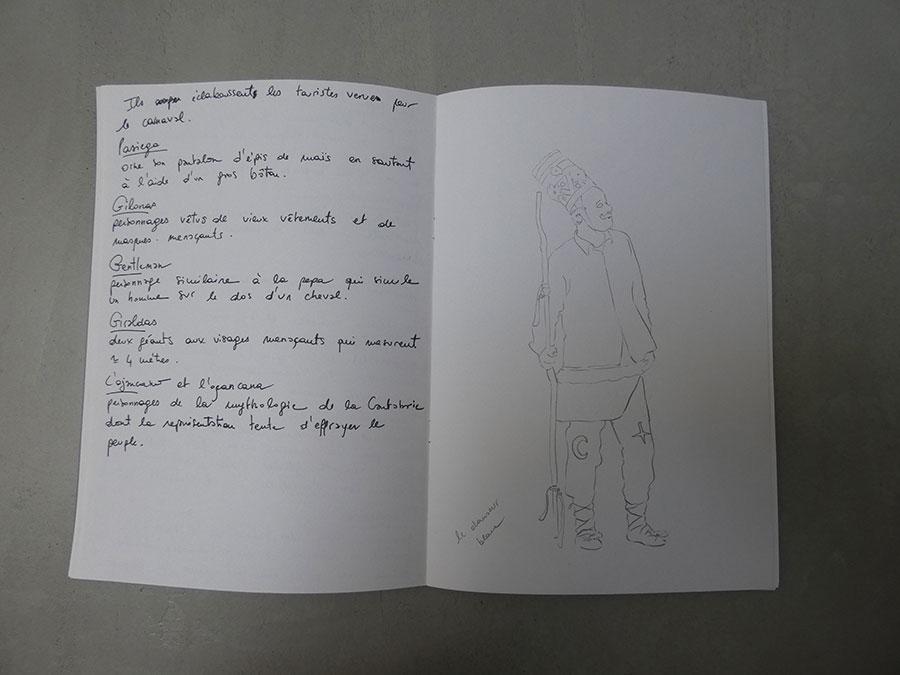 Ils éclaboussent les touristes venus pour
le carnaval.
Pasiega
orne son pantalon d'épis de maïs en sautant
à l'aide d'un gros bâton.
Gilonas
personnages vêtus de vieux vêtements et de
masques menaçants.
Gentleman
personnage similaire à la pepa qui simule
un homme sur le dos d'un cheval.
Giraldas
deux géants aux visages menaçants qui mesurent
≈ 4 mètres.
L'ojancano et l'ojancana
personnages de la mythologie de la Cantabrie
dont la représentation tente d'effrayer le
peuple.
le danseur
blanc